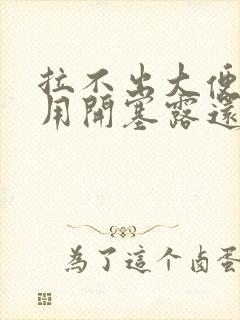 拉不出大便
用開塞露還
為了這个卤蛋